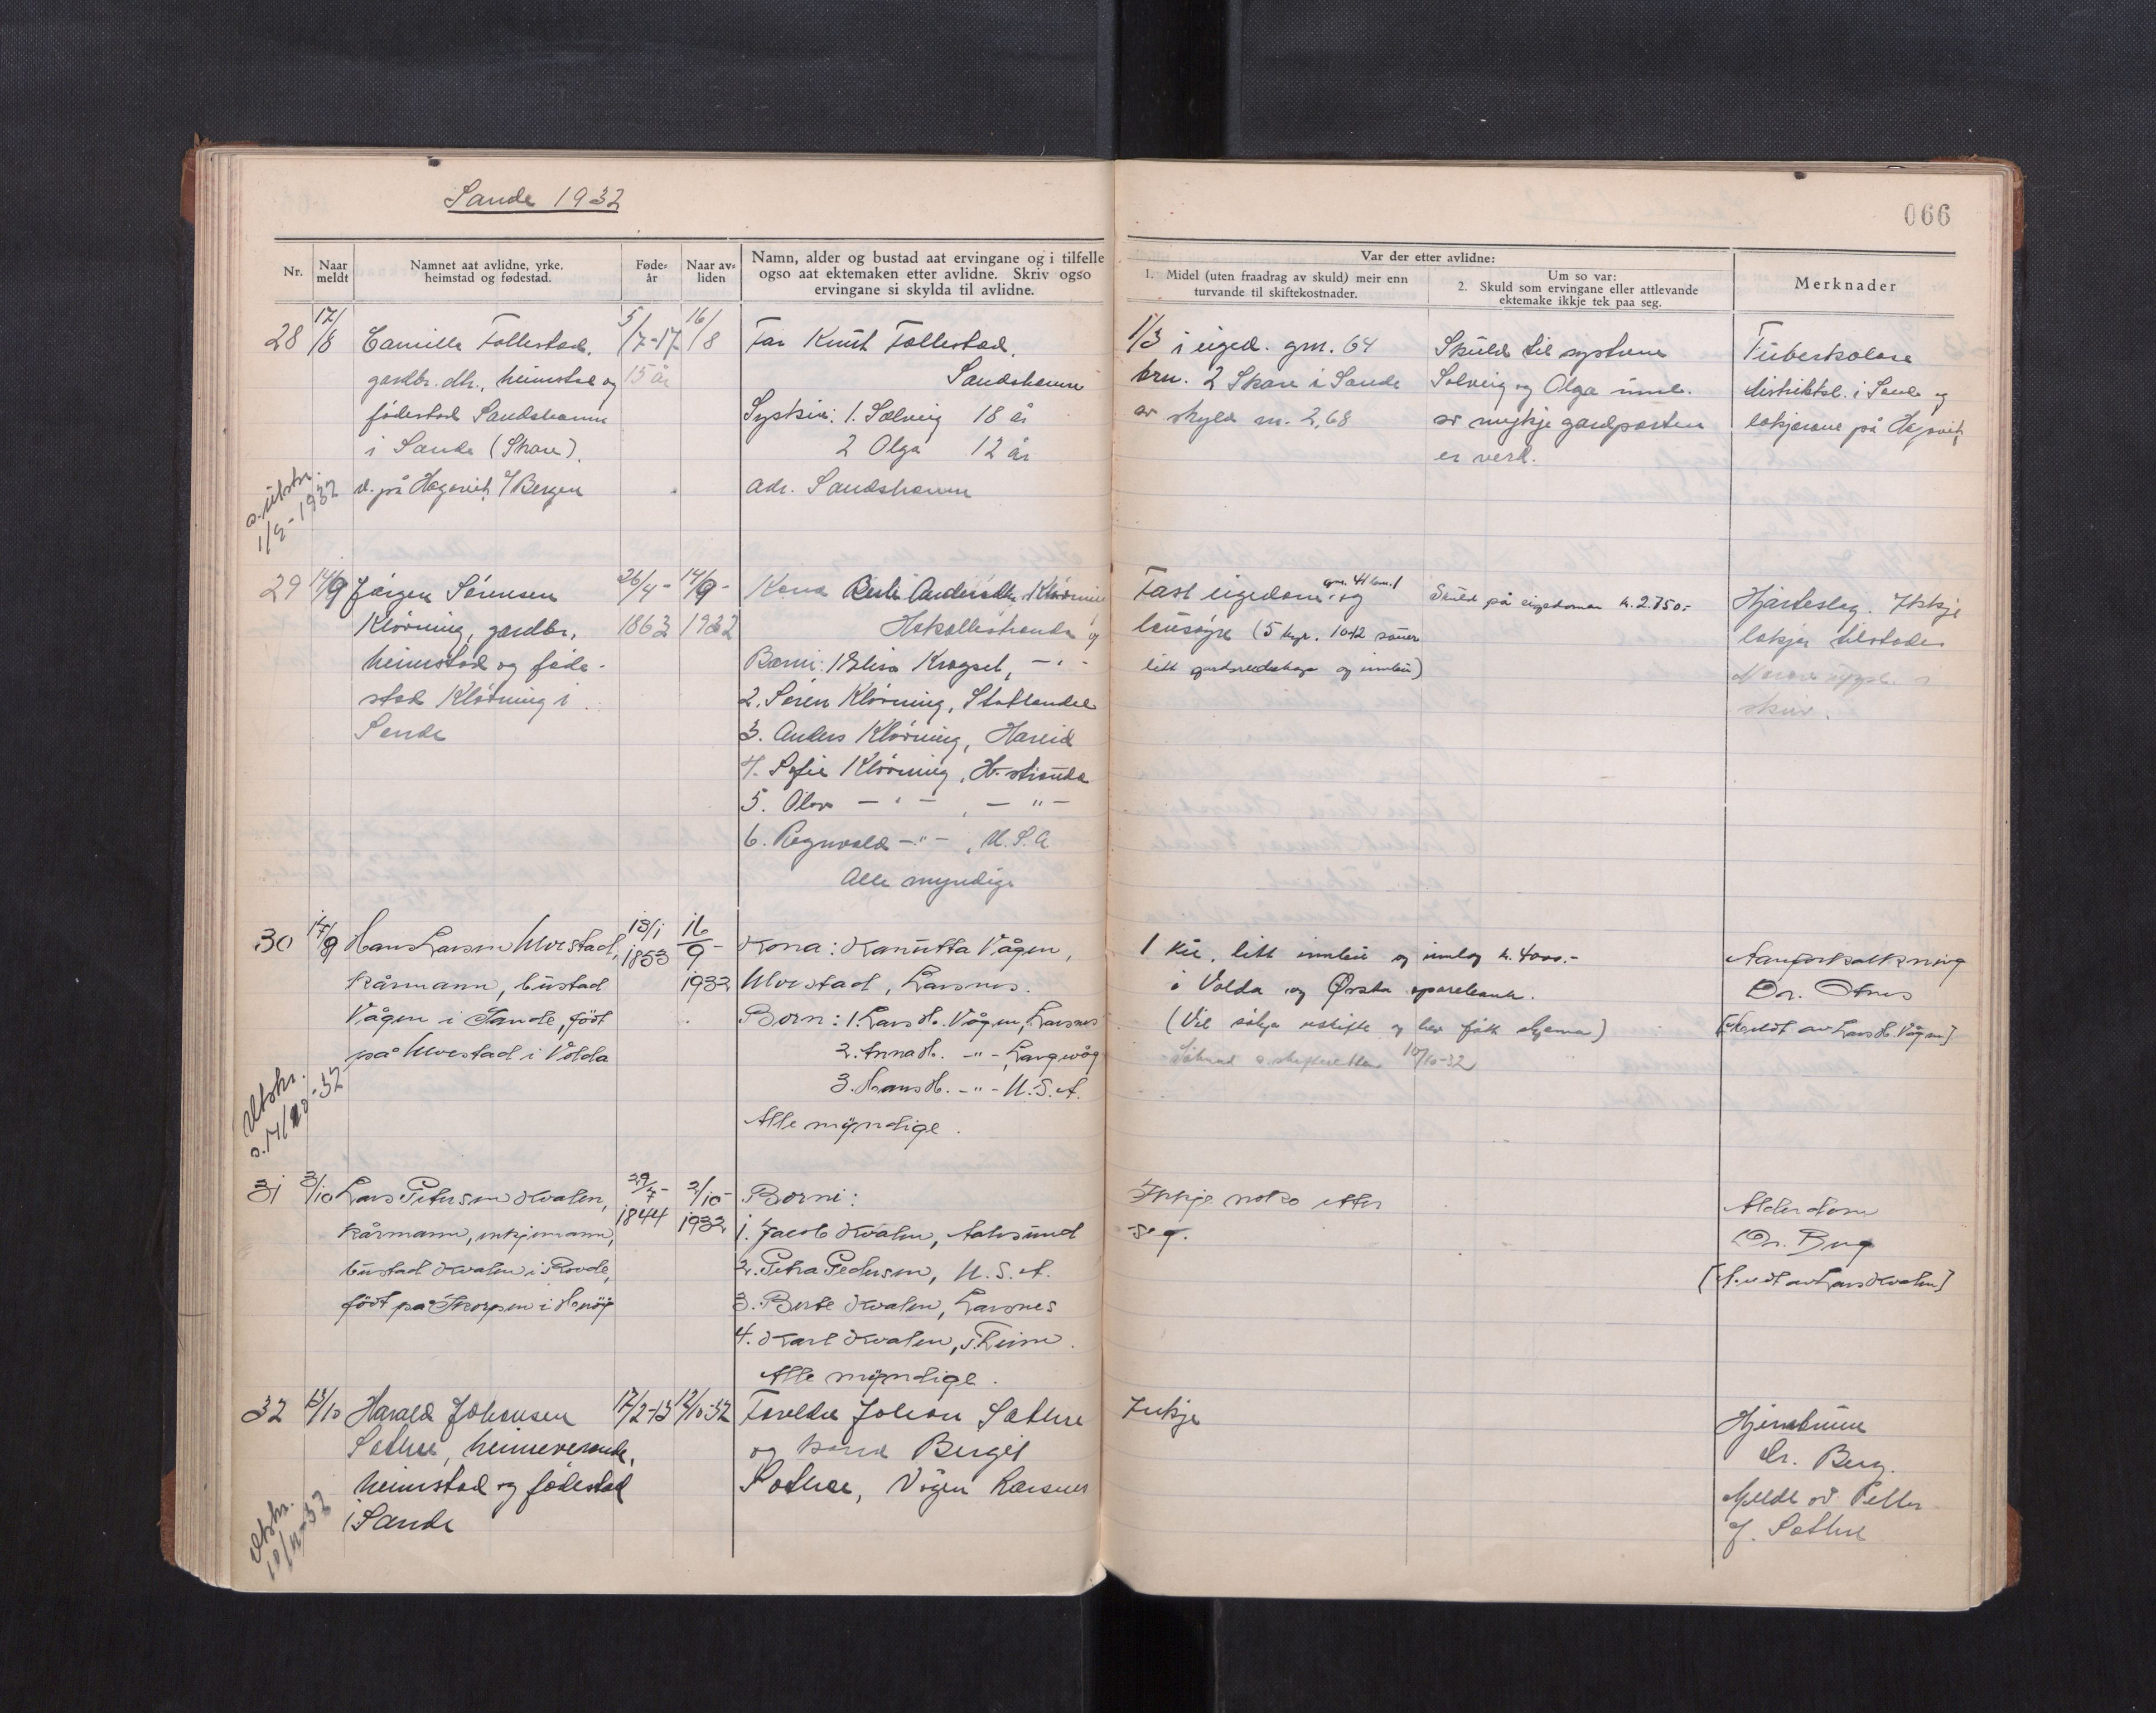 Sande 1932
066
Nr.
Naar meldt
Namnet aat avlidne, yrke, heimstad og fødestad.
Føde-år
Naar av-liden
Namn, alder og bustad aat ervingane og i tilfelle ogso aat ektemaken etter avlidne. Skriv ogso ervingane si skylda til avlidne.
Var der etter avlidne:
1. Midel (uten fraadrag av skuld) meir enn turvande til skiftekostnader.
Um so var:
2. Skuld som ervingane eller attlevande ektemake ikkje tek paa seg.
Merknader
28 17/8 Camilla Follestad,
gardbr. dtr., heimstad og
fødestad Sandshamn
i Sande (Skare).
d. på Hagavik /Bergen
a. utskr.
1/9-1932
5/7-17
15 år
16/8
Far Knut Follestad,
Sandshamn
Syskin: 1. Solveig 18 år
2 Olga 12 år
adr. Sandshamn
1/3 i eiged. gnr. 64
brn. 2 Skare i Sande
av skyld m. 2,68
Skuld til systrene
Solveig og Olga
av mykje gardparten
er verd.
Tuberkolose
distriktsl. i Sande og
lækjarane på Hagavik
29 14/9 Jørgen Sørensen
Kløvning, gardbr.,
heimstad og føde-
stad Kløvning i
Sande
26/4-
1863
14/9-
1932
Kona Berte Andersdtr. Kløvning
Hakallestranda og
Borni: 1 Elisa Kragset, -"-
2. Søren Kløvning, Statlandet
3. Anders Kløvning, Hareid
4. Sofie Kløvning, H-stranda
5. Olav -"- , -"-
6. Ragnvald -"- , U.S.A
Alle myndige
Fast eigedom gnr. 41 bnr. 1 og
lausøyre (5 kyr. 10-12 sauer
litt gardsreidskap og innbu)
Skuld på eigedomen kr. 2.750.-
Hjarteslag. Ikkje
lækjar tilstades
30 17/9 Hans Larsen Ulvestad,
kårmann, bustad
Vågen i Sande, født
på Ulvestad i Volda
Utskr.
a. 14/10-32
13/1
1853
16/9-
1932
Kona: Kanutta Vågen,
Ulvestad, Larsnes.
Born: 1. Lars H. Vågen, Larsnes
2. Anna H. -"- Langevåg
3. Hans H. -"- U.S.A.
Alle myndige.
1 ku, litt innbu og innlog kr. 4000.-
i Volda og Ørsta sparebank.
(Vil søkja uskifte og hev fått skjema)
10/10-32
Aareforkalkning
Dr.
[Meldt av Lars H. Vågen]
31 3/10 Lars Petersen Kvalen,
kårmann, enkjemann,
bustad Kvalen i Rovde,
født på Skorpen i Herøy
29/7-
1844
2/10-
1932
Borni:
1. Jacob Kvalen, Aalesund
2. Petra Pedersen, U.S.A.
3. Berte Kvalen, Larsnes
4. Karl Kvalen,
Alle myndige.
Ikkje noko etter
seg.
Alderdom
Dr. Berg
[Meldt av Lars Kvalen]
32 13/10 Harald Johansen
Sætre, heimeverande,
heimstad og fødestad
i Sande
Utskr.
10/11-32
17/2-13
12/10-32
Foreldre Johan Sætre
og kona Bergit
Sætre, Vågen Larsnes
Inkje
Hjernbetennelse
Dr. Berg.
Meldt av Petter
J. Sætre